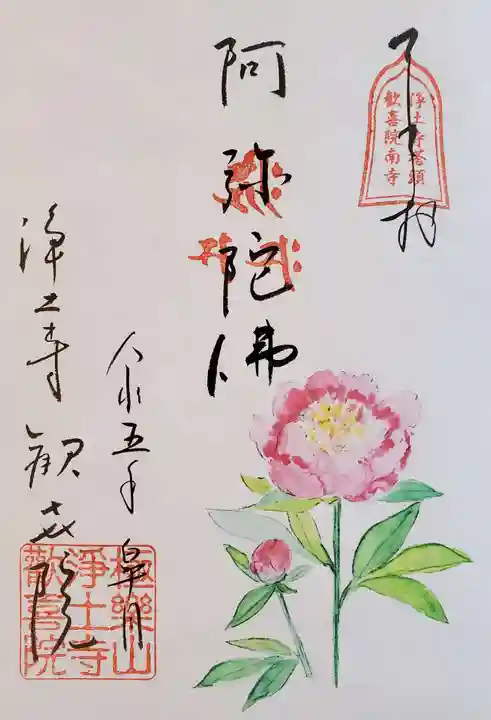 浄土寺塔頭
歓喜院南寺
阿弥陀佛
令和五年 皐月
浄土寺 観喜院
極樂山
淨土寺
歡喜院